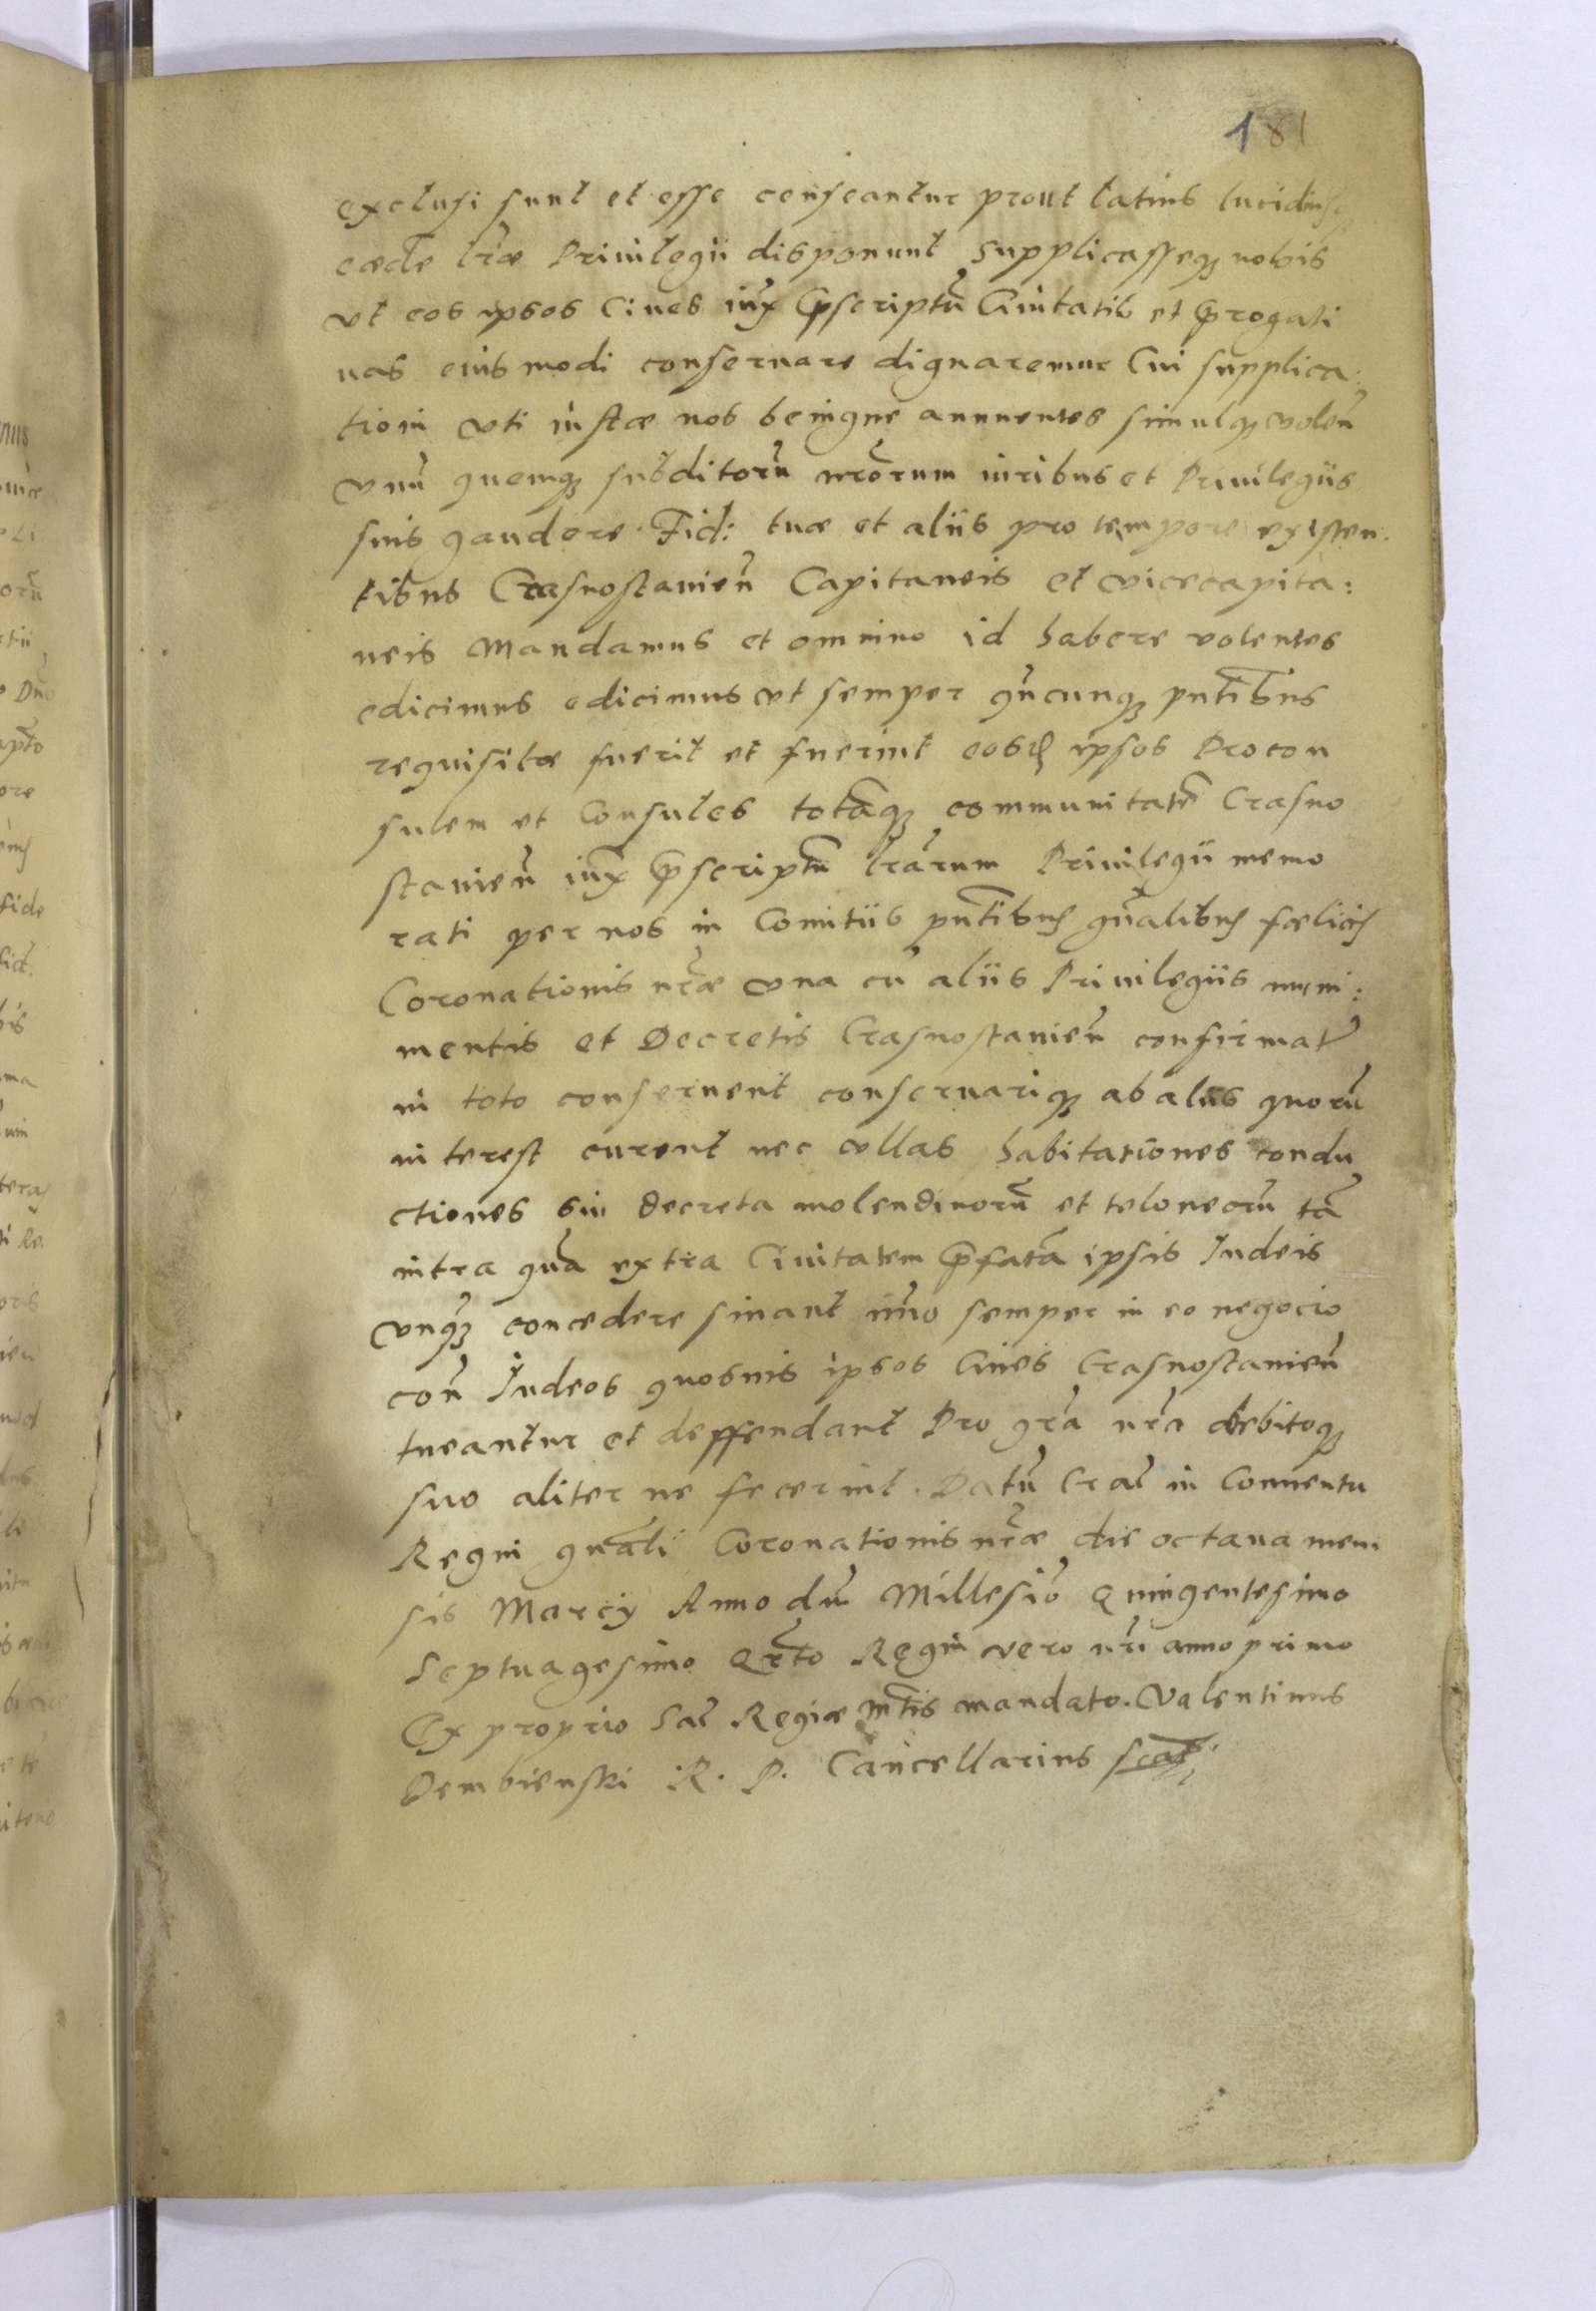 181
exclusi sunt et esse censeantur prout latius lucidiusq₃
eædē lr̃æ Priuilegii disponunt supplicasseq₃ nobis
vt eos ipsos Ciues iux̃ p̃scriptũ Ciuitatis et p̃rogati
uas eiusmodi conseruare dignaremur Cui supplica:
tioni vti iustæ nos benigne annuentes simulq₃ volen̄
vnũ quemq₃ subditorũ nr̃orum iuribus et Priuilegiis
suis gaudere Fid: tuæ et aliis pro tempore existen.
tibus Crasnostauien̄ Capitaneis et vicecapita:
neis Mandamus et omnino id habere volentes
edicimus edicimus vt semper qn̄cunq₃ pn̄tibus
requisitæ fuerit et fuerint eosd ipsos Procon
sulem et Consules totãq₃ communitatē Crasno
stauien̄ iux̃ p̃scriptũ lr̃arum Priuilegii memo
rati per nos in Comitiis pn̄tibus gn̄alibus fœlicis
Coronationis nr̃æ vna cũ aliis Priuilegiis muni:
mentis et Decretis Crasnostauien̄ confirmat
in toto conseruent conseruariq₃ ab aliis quorũ
interest curent nec vllas habitationes condu
ctiones siu decreta molendinorũ et teloneorũ tã
intra quã extra Ciuitatem p̃fatã ipsis Iudeis
vnq₃ concedere sinant im̃o semper in eo negocio
con̄ Iudeos quosuis ipsos Ciues Crasnostauien̄
tueantur et deffendant Pro gr̃a nr̃a debitoq₃
suo aliter ne fecerint. Datũ Crac in Conuentu
Regni gn̄ali Coronationis nr̃æ die octaua men
sis Marcij Anno dnĩ Millesĩo Quingentesimo
Septuagesimo Qr̃to Regni vero nr̃i anno primo
Ex proprio Sac Regiæ Mtis mandato. Valentinus
Dembienski R. P. Cancellarius scat